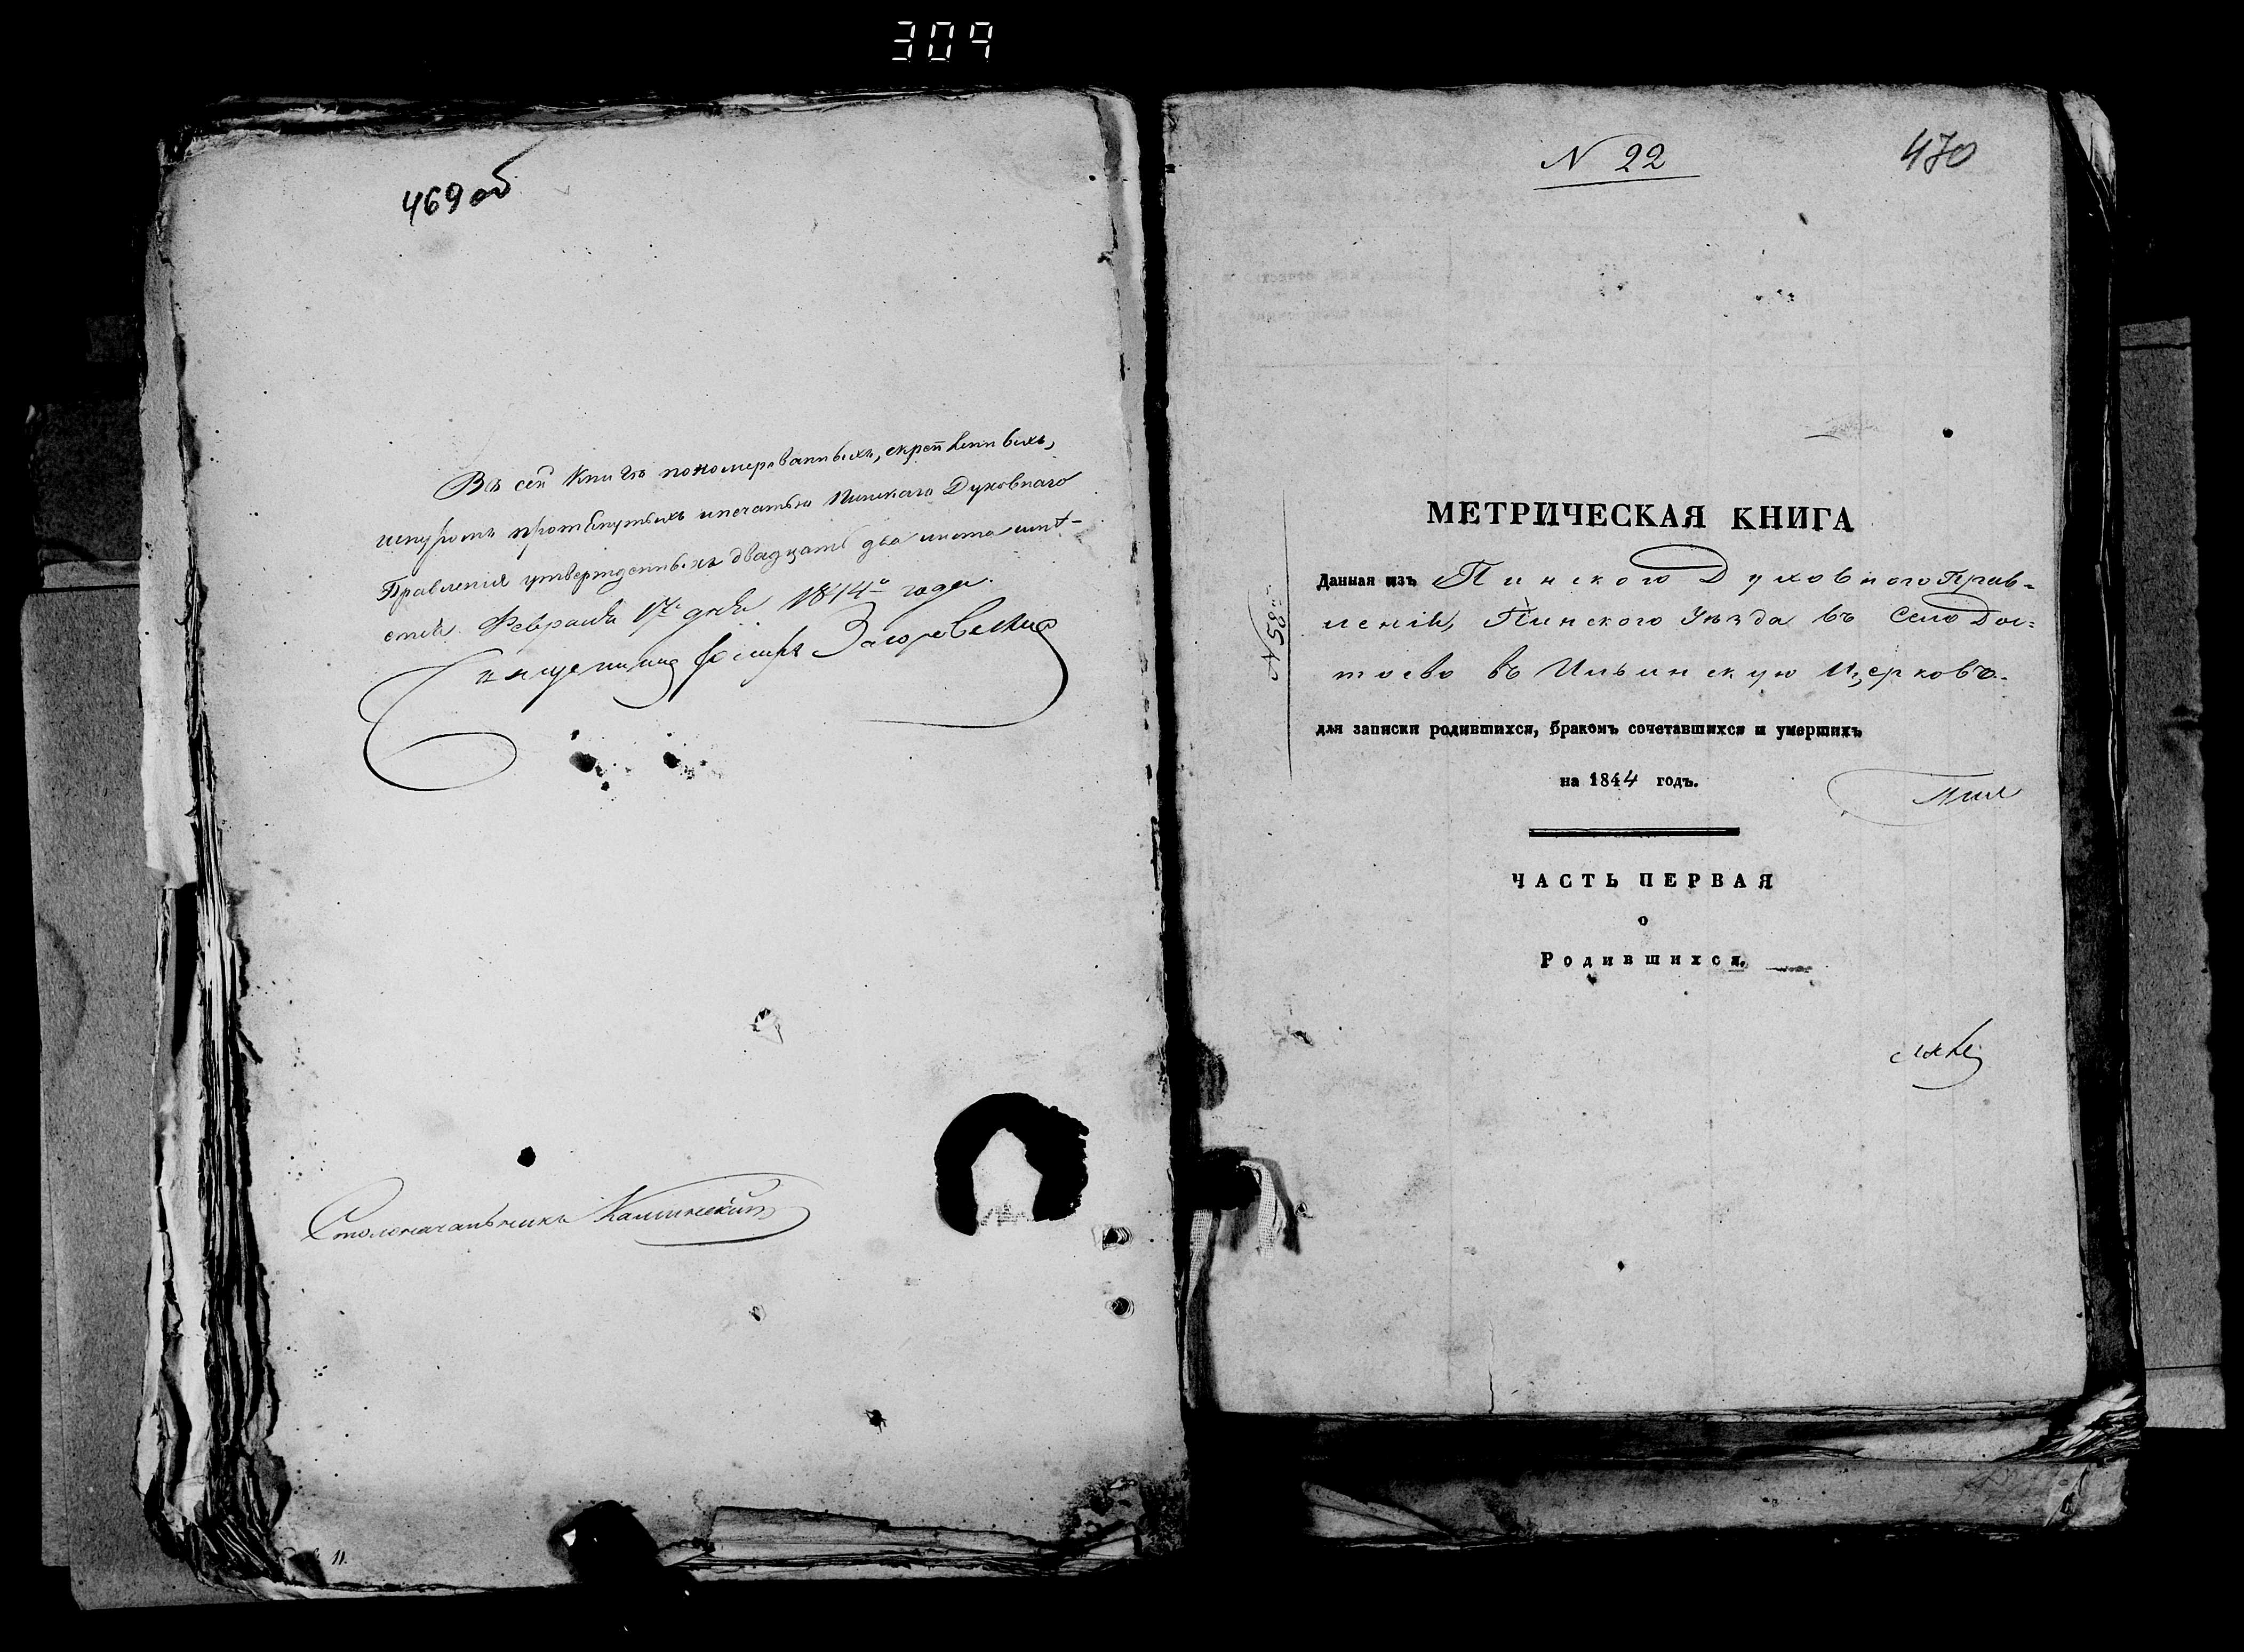 309
469 об
Въ сей Книгѣ пономерованныхъ, скрѣпленныхъ,
шнуромъ протянутыхъ и печатью Пинскаго Духовнаго
Правленія утвержденныхъ двадцать два листа имѣ-
ется. Февраля 17 дня 1844 года.
Священникъ Загоровскій
Столоначальникъ Калинскій
11.
N 22
470
N 58
МЕТРИЧЕСКАЯ КНИГА
Данная изъ Пинского Духовного Прав=
ленія, Пинского Уѣзда въ Село Дос=
тоево въ Ильинскую Церковъ
для записки родившихся, бракомъ сочетавшихся и умершихъ
на 1844 годъ.
ЧАСТЬ ПЕРВАЯ
о
Родившихся.